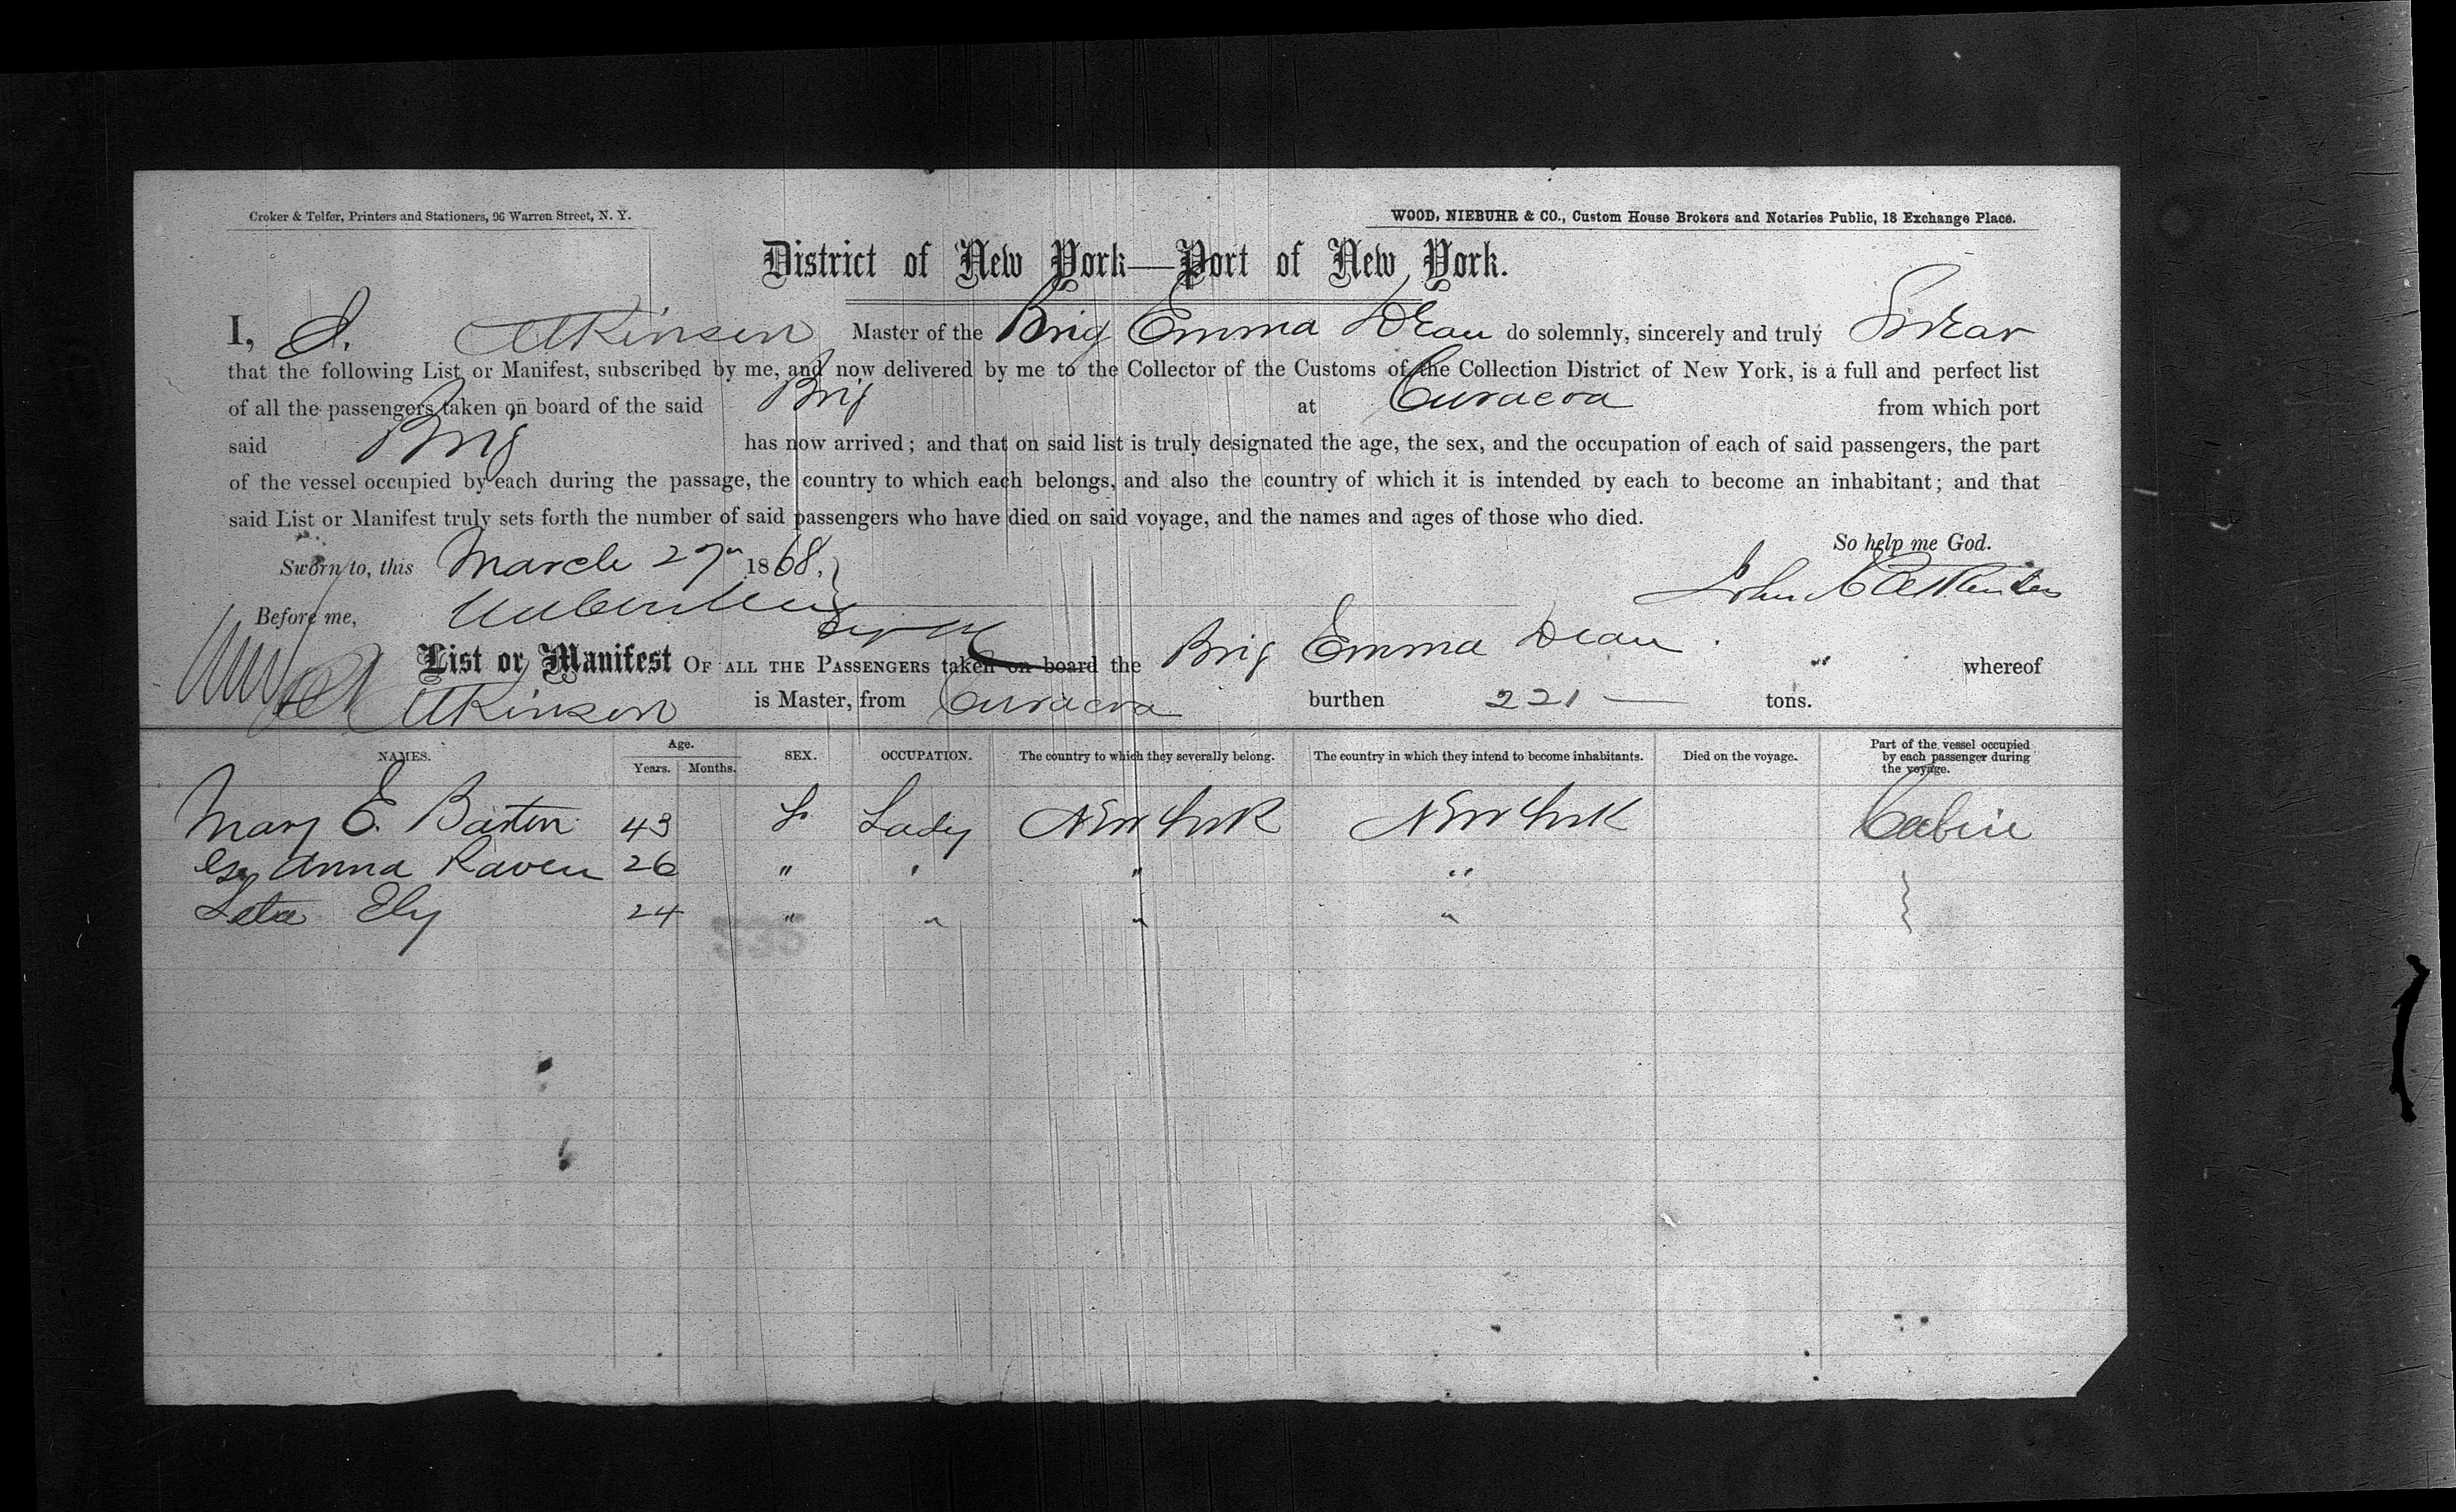 Croker & Telfer, Printers and Stationers, 96 Warren Street, N. Y.
WOOD, NIEBUHR & CO., Custom House Brokers and Notaries Public, 18 Exchange Place.
District of New York—Port of New York.
I, Atkinson Master of the Brig Emma Dean do solemnly, sincerely and truly Swear
that the following List or Manifest, subscribed by me, and now delivered by me to the Collector of the Customs of the Collection District of New York, is a full and perfect list
of all the passengers taken on board of the said Brig at Curacoa from which port
said Brig has now arrived; and that on said list is truly designated the age, the sex, and the occupation of each of said passengers, the part
of the vessel occupied by each during the passage, the country to which each belongs, and also the country of which it is intended by each to become an inhabitant; and that
said List or Manifest truly sets forth the number of said passengers who have died on said voyage, and the names and ages of those who died.
So help me God.
Sworn to, this March 27 1868.
John Atkinson
Before me,
List or Manifest OF ALL THE PASSENGERS taken on board the Brig Emma Dean " whereof
Atkinson is Master, from Curacoa burthen 221 tons.
NAMES. Age. Years. Months. SEX. OCCUPATION. The country to which they severally belong. The country in which they intend to become inhabitants. Died on the voyage. Part of the vessel occupied by each passenger during the voyage.
Mary E. Barton 43 F Lady New York New York Cabin
Anna Raven 26 " " " "
Ely 24 " " " "